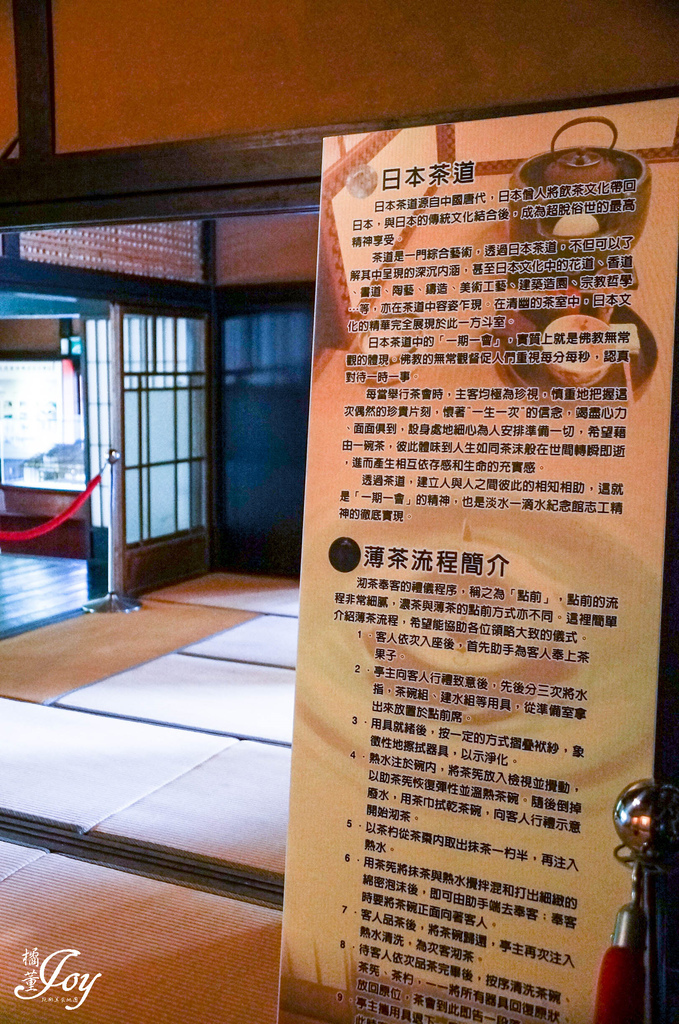 日本茶道
日本茶道源自中國唐代，日本僧人將飲茶文化帶回
日本，與日本的傳統文化結合後，成為超脫俗世的最高
精神享受。
茶道是一門綜合藝術，透過日本茶道，不但可以了
解其中呈現的深沉內涵，甚至日本文化中的花道、香道
、書道、陶藝、鑄造、美術工藝、建築造園、宗教哲學
…等，亦在茶道中容姿乍現。在清幽的茶室中，日本文
化的精華完全展現於此一方斗室。
日本茶道中的「一期一會」，實質上就是佛教無常
觀的體現。佛教的無常觀督促人們重視每分每秒，認真
對待一時一事。
每當舉行茶會時，主客均極為珍視，慎重地把握這
次偶然的珍貴片刻，懷著“一生一次”的信念，竭盡心力
、面面俱到，設身處地細心為人安排準備一切，希望藉
由一碗茶，彼此體味到人生如同茶沫般在世間轉瞬即逝
，進而產生相互依存感和生命的充實感。
透過茶道，建立人與人之間彼此的相知相助，這就
是「一期一會」的精神，也是淡水一滴水紀念館志工精
神的徹底實現。
薄茶流程簡介
沏茶奉客的禮儀程序，稱之為「點前」，點前的流
程非常細膩，濃茶與薄茶的點前方式亦不同。這裡簡單
介紹薄茶流程，希望能協助各位領略大致的儀式。
1．客人依次入座後，首先助手為客人奉上茶
果子。
2．亭主向客人行禮致意後，先後分三次將水
指，茶碗組、建水組等用具，從準備室拿
出來放置於點前席。
3．用具就緒後，按一定的方式摺疊袱紗，象
徵性地擦拭器具，以示淨化。
4．熱水注於碗內，將茶筅放入檢視並攪動，
以助茶筅恢復彈性並溫熱茶碗。隨後倒掉
廢水，用茶巾拭乾茶碗，向客人行禮示意
開始沏茶。
5．以茶杓從茶棗內取出抹茶一杓半，再注入
熱水。
6．用茶筅將抹茶與熱水攪拌混和打出細緻的
綿密泡沫後，即可由助手端去奉客；奉客
時要將茶碗正面向著客人。
7．客人品茶後，將茶碗歸還，亭主再次注入
熱水清洗，為次客沏茶。
8．待客人依次品茶完畢後，按序清洗茶碗、
茶筅、茶杓，一一將所有器具回復原狀、
放回原位，茶會到此即告一段落
9．亭主攜用具退下
橘董
Joy